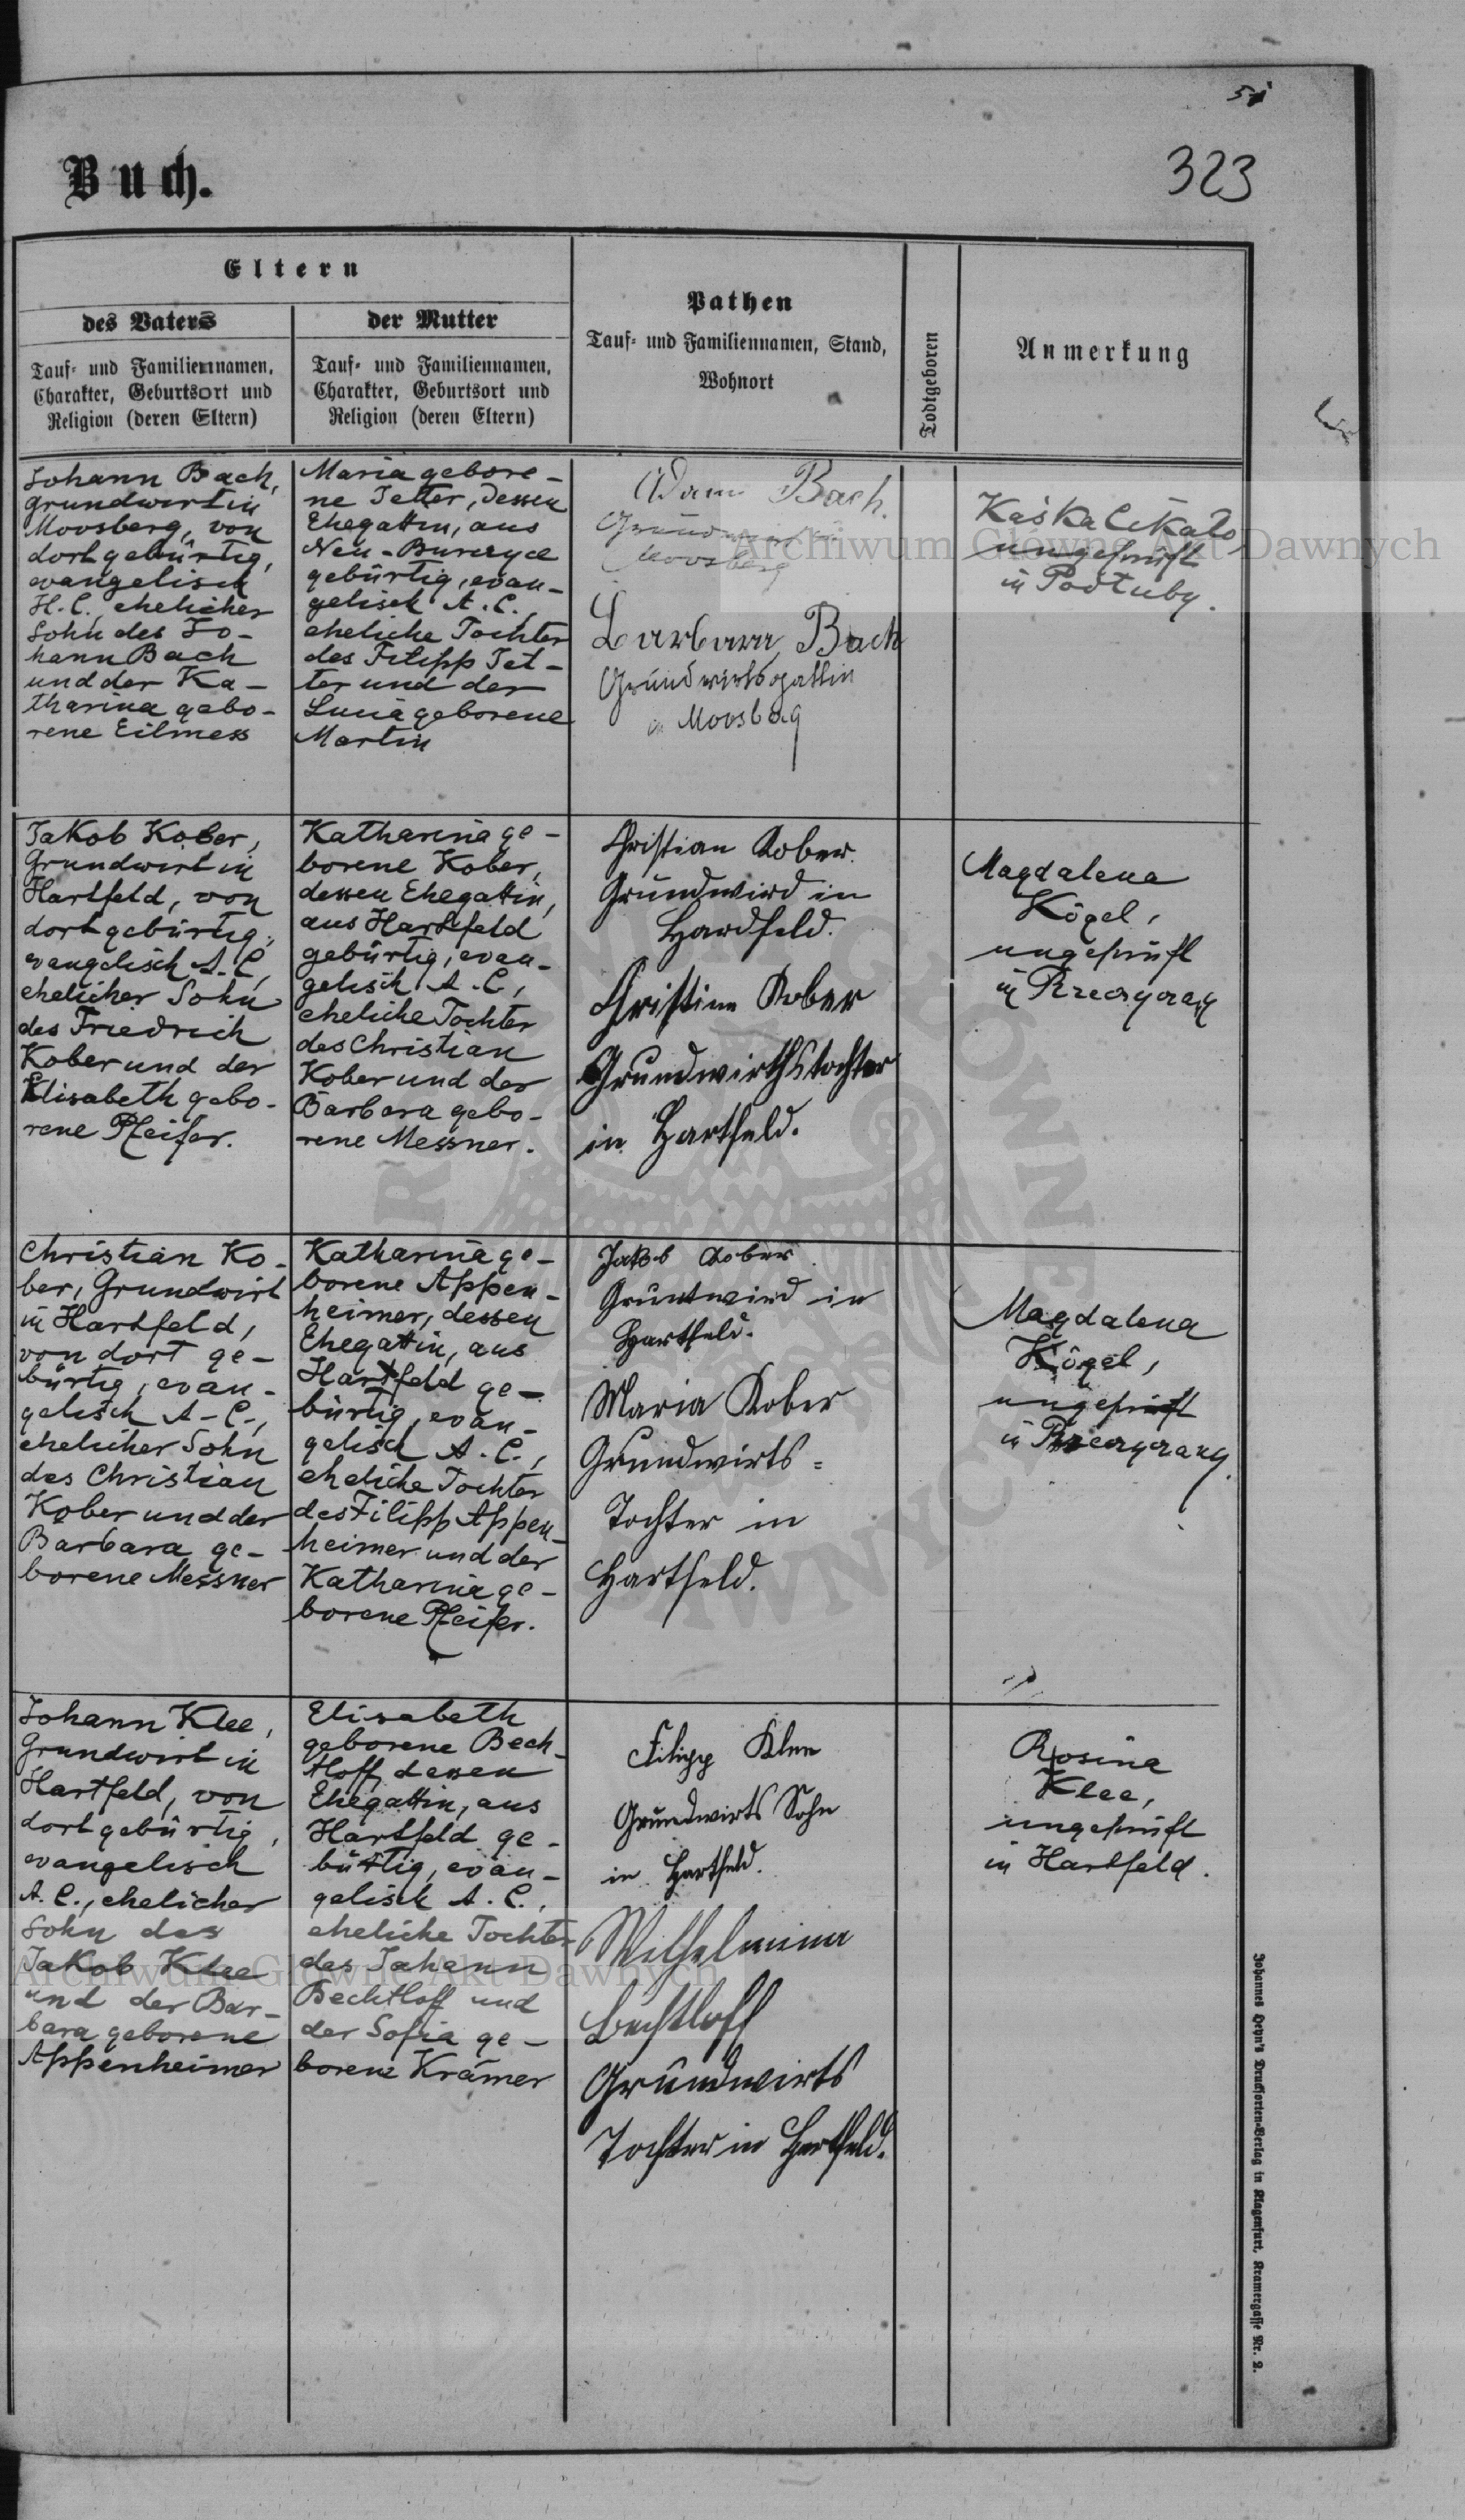 51
323
Buch.
Eltern
des Vaters
der Mutter
Pathen
Tauf- und Familiennamen, Stand,
Wohnort
Todtgeboren
Anmerkung
Tauf- und Familiennamen,
Charakter, Geburtsort und
Religion (deren Eltern)
Tauf- und Familiennamen,
Charakter, Geburtsort und
Religion (deren Eltern)
Johann Bach,
Grundwirt in
Moosberg, von
dort gebürtig,
evangelisch
H.C., ehelicher
Sohn des Jo-
hann Bach
und der Ka-
tharina gebo-
rene Eilmess
Maria gebore-
ne Tetter, dessen
Ehegattin, aus
Neu-
gebürtig, evan-
gelisch A.C.,
eheliche Tochter
des Filipp Tet-
ter und der
Lucia geborene
Martin
Adam Bach.
Moosberg
Barbara Bach
Grundwirtsgattin
in Moosberg
ungeprüft
in
Jakob Kober,
Grundwirt in
Hartfeld, von
dort gebürtig,
evangelisch A.C.,
ehelicher Sohn
des Friedrich
Kober und der
Elisabeth gebo-
rene Pfeifer.
Katharina ge-
borene Kober,
dessen Ehegattin,
aus Hartfeld
gebürtig, evan-
gelisch A.C.,
eheliche Tochter
des Christian
Kober und der
Barbara gebo-
rene Messner.
Christian Kober.
Grundwird in
Hardfeld.
Christina Kober
Grundwirthstochter
in Hartfeld.
Magdalena
Kögel,
ungeprüft
in
Christian Ko-
ber, Grundwirt
in Hartfeld,
von dort ge-
bürtig, evan-
gelisch A.C.,
ehelicher Sohn
des Christian
Kober und der
Barbara ge-
borene Messner
Katharina ge-
borene Appen-
heimer, dessen
Ehegattin, aus
Hartfeld ge-
bürtig, evan-
gelisch A.C.,
eheliche Tochter
des Filipp Appen-
heimer und der
Katharina ge-
borene Pfeifer.
Jakob Kober
Gruntwird in
Hartfeld.
Maria Kober
Grundwirts=
Tochter in
Hartfeld.
Magdalena
Kögel,
ungeprüft
in
Johann Klee,
Grundwirt in
Hartfeld, von
dort gebürtig,
evangelisch
A.C., ehelicher
Sohn des
Jakob Klee
und der Bar-
bara geborene
Appenheimer
Elisabeth
geborene Bech-
tloff, dessen
Ehegattin, aus
Hartfeld ge-
bürtig, evan-
gelisch A.C.,
eheliche Tochter
des Johann
Bechtloff und
der Sofia ge-
borene Krämer
Filipp Klee
Grundwirts Sohn
in Hartfeld.
Wilhelmina
Bechtloff
Grundwirts
Tochter in Hartfeld.
Rosina
Klee,
ungeprüft
in Hartfeld.
Johannes Heyn's Drucksorten-Verlag in Klagenfurt, Kramergasse Nr. 2.
Archiwum Główne Akt Dawnych
Archiwum Główne Akt Dawnych